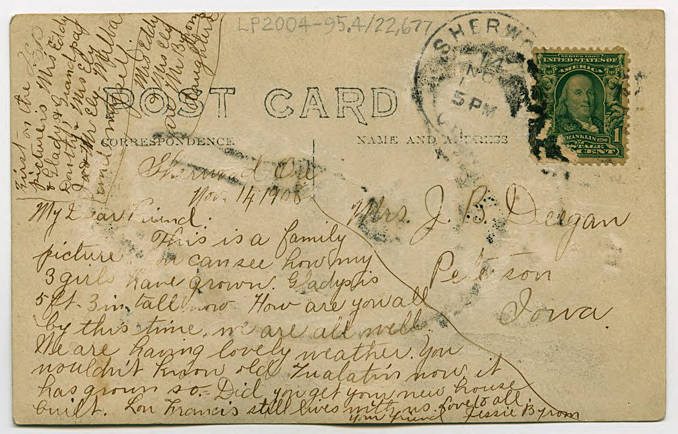 LP2004-95.4/22,677
SHERW
14
5 PM
POST CARD
CORRESPONDENCE
NAME AND ADDRESS
SERIES 1902
UNITED STATES OF
AMERICA
FRANKLIN
POSTAGE
1 CENT
First on the
pictures Mrs Eddy
& Gladys & Grandpa
& Mrs Ely
and Mr Ely Melba
and
& Mrs Eddy
& Mrs Ely
are Mr Byrom
daughters
Sherwood Ore
Nov 14 1908
My Dear Friend
This is a family
picture can see how my
3 girls have grown. Gladys is
5 ft. 3 in tall now. How are you all
by this time, we are all well.
We are having lovely weather. You
wouldn't know old Tualatin now it
has grown so. Did you get your new house
built. Lon Francis still lives with us. Love to all
Your friend Jessie Byrom
Mrs. J. B. Deegan
Peterson
Iowa.